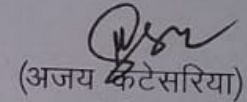 (अजय कटेसरिया)